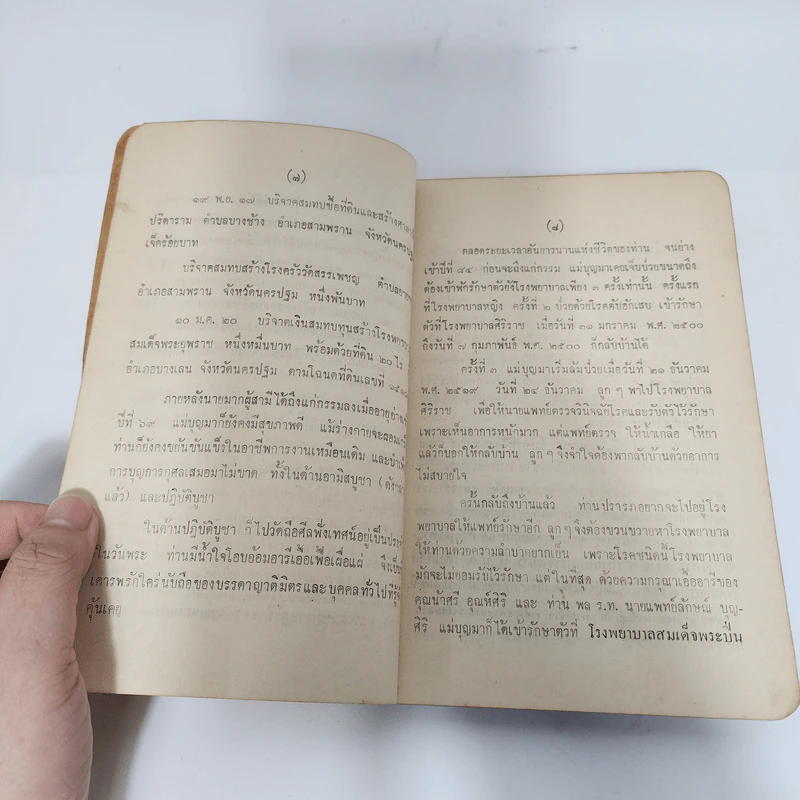 (๗)
๑๙ พ.ย. ๑๗ บริจาคสมทบซื้อที่ดินและสร้างศาลา
ปรีดาราม ตำบลบางช้าง อำเภอสามพราน จังหวัดนครปฐม
เจ็ดร้อยบาท
บริจาคสมทบสร้างโรงครัววัดสรรเพชญ ตำบล
อำเภอสามพราน จังหวัดนครปฐม หนึ่งพันบาท
๑๐ ม.ค. ๒๐ บริจาคเงินสมทบทุนสร้างโรงพยาบาล
สมเด็จพระยุพราช หนึ่งหมื่นบาท พร้อมด้วยที่ดิน ๒๐ ไร่
อำเภอบางเลน จังหวัดนครปฐม ตามโฉนดที่ดินเลขที่
ภายหลังนายมากผู้สามีได้ถึงแก่กรรมลงเมื่ออายุย่าง
ปีที่ ๖๙ แม่บุญมาก็ยังคงมีสุขภาพดี แม้ร่างกายจะผอม
ท่านก็ยังคงขยันขันแข็งในอาชีพการงานเหมือนเดิม และบำเพ็ญ
การบุญการกุศลเสมอมาไม่ขาด ทั้งในด้านอามิสบูชา (ดัง
แล้ว) และปฏิบัติบูชา
ในด้านปฏิบัติบูชา ก็ไปวัดถือศีลฟังเทศน์อยู่เป็นประจำ
ในวันพระ ท่านมีน้ำใจโอบอ้อมอารีเอื้อเฟื้อเผื่อแผ่ จึงเป็น
เคารพรักใคร่นับถือของบรรดาญาติมิตรและบุคคลทั่วไปที่รู้จัก
คุ้นเคย
(๘)
ตลอดระยะเวลาอันยาวนานแห่งชีวิตของท่าน จนย่าง
เข้าปีที่ ๘๔ ก่อนจะถึงแก่กรรม แม่บุญมาเคยเจ็บป่วยขนาดถึง
ต้องเข้าพักรักษาตัวยังโรงพยาบาลเพียง ๓ ครั้งเท่านั้น ครั้งแรก
ที่โรงพยาบาลหญิง ครั้งที่ ๒ ป่วยด้วยโรคตับอักเสบ เข้ารักษา
ตัวที่โรงพยาบาลศิริราช เมื่อวันที่ ๓๑ มกราคม พ.ศ. ๒๕๐๐
ถึงวันที่ ๗ กุมภาพันธ์ พ.ศ. ๒๕๐๐ ก็กลับบ้านได้
ครั้งที่ ๓ แม่บุญมาเริ่มล้มป่วยเมื่อวันที่ ๒๑ ธันวาคม
พ.ศ. ๒๕๑๙ วันที่ ๒๔ ธันวาคม ลูก ๆ พาไปโรงพยาบาล
ศิริราช เพื่อให้นายแพทย์ตรวจวินิจฉัยโรคและรับตัวไว้รักษา
เพราะเห็นอาการหนักมาก แต่แพทย์ตรวจ ให้น้ำเกลือ ให้ยา
แล้วก็บอกให้กลับบ้าน ลูก ๆ จึงจำใจต้องพากลับบ้านด้วยอาการ
ไม่สบายใจ
ครั้นกลับถึงบ้านแล้ว ท่านปรารภอยากจะไปอยู่โรง
พยาบาลให้แพทย์รักษาอีก ลูก ๆ จึงต้องขวนขวายหาโรงพยาบาล
ให้ท่านด้วยความลำบากยากเย็น เพราะโรคชนิดนี้โรงพยาบาล
มักจะไม่ยอมรับไว้รักษา แต่ในที่สุด ด้วยความกรุณาเอื้ออารีของ
คุณน้าศรี อุณห์ศิริ และ ท่าน พล ร.ท. นายแพทย์ลักษณ์ บุญ-
ศิริ แม่บุญมาก็ได้เข้ารักษาตัวที่ โรงพยาบาลสมเด็จพระปิ่น